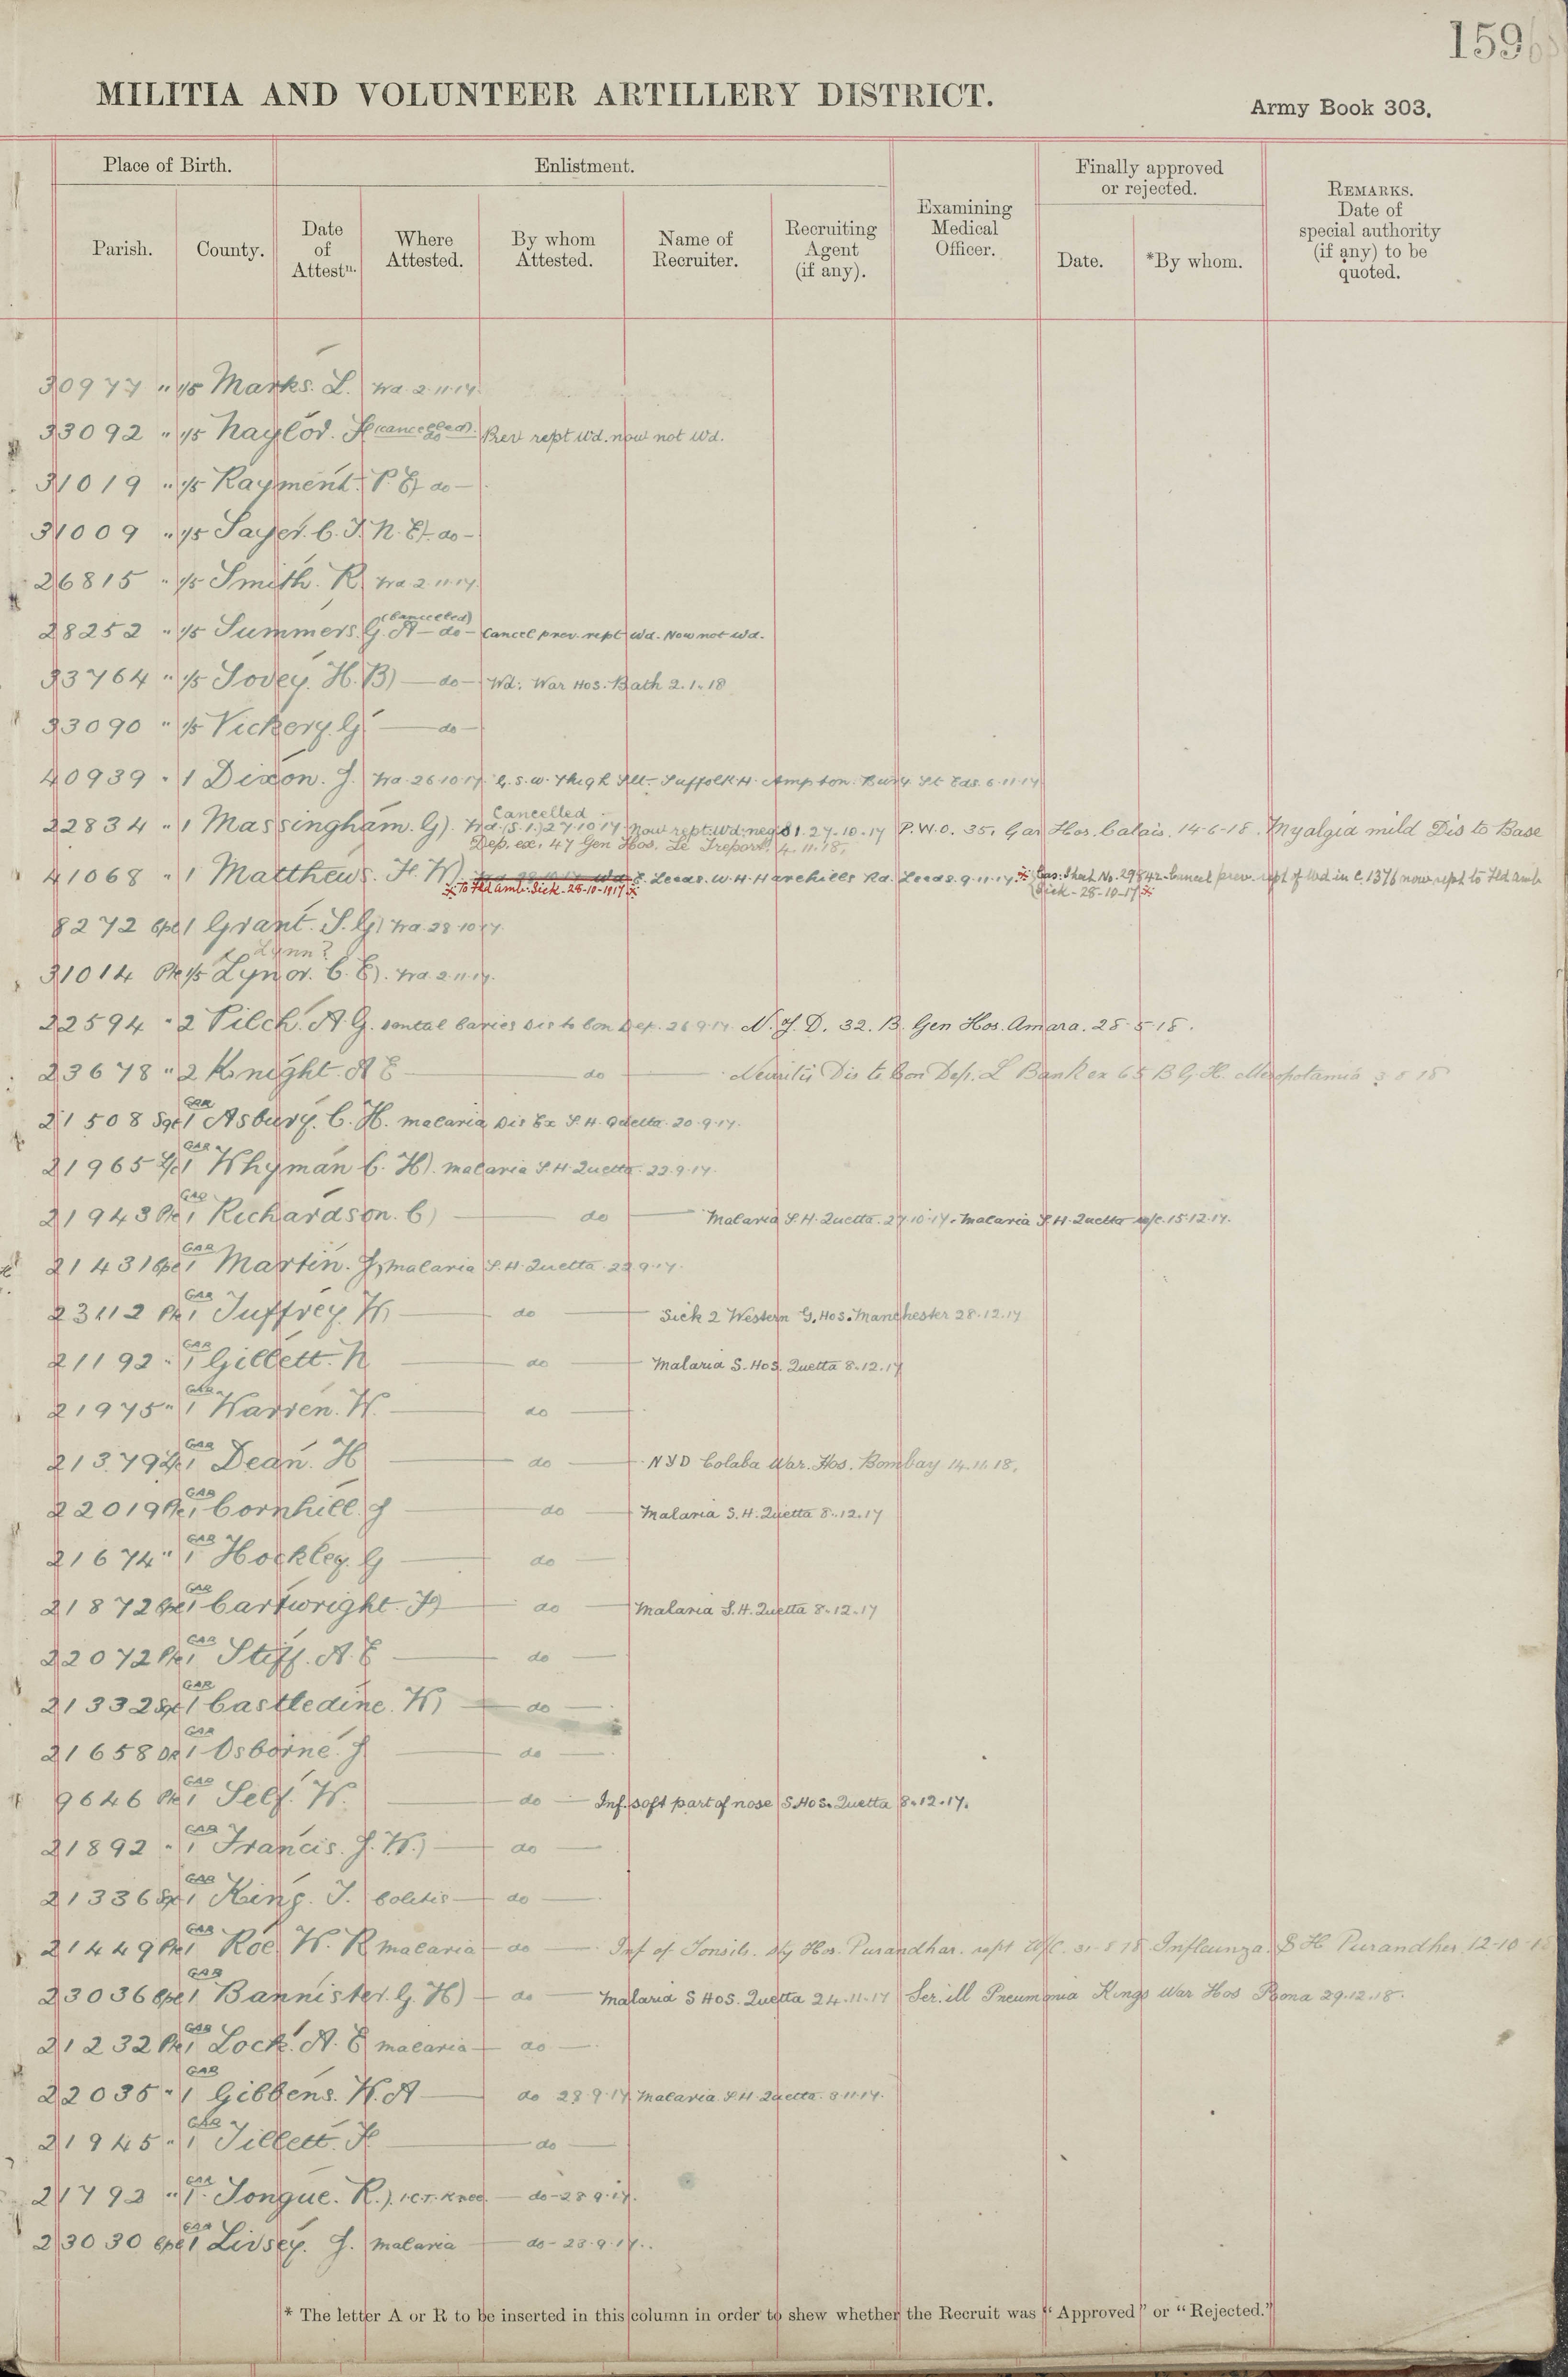 159
MILITIA AND VOLUNTEER ARTILLERY DISTRICT.
Army Book 303.
Place of Birth. Enlistment. Finally approved or rejected.
Parish. County. Date of Attestn. Where Attested. By whom Attested. Name of Recruiter. Recruiting Agent (if any). Examining Medical Officer. Date. *By whom. REMARKS. Date of special authority (if any) to be quoted.
30977 " 1/5 Marks. L. Wd. 2.11.17.
33092 " 1/5 Naylor. F (cancelled) do Prev rept Wd. now not Wd.
31019 " 1/5 Rayment. P. E. - do -
31009 " 1/5 Sayer. C. J. N. E. - do -
26815 " 1/5 Smith. R. Wd. 2.11.17.
28252 " 1/5 Summers. G. A - do - (Cancelled) Cancel prev. rept Wd. Now not Wd.
33764 " 1/5 Tovey. H. B) - do - Wd: War Hos. Bath 2.1.18
33090 " 1/5 Vickery. G. - do -
40939 " 1 Dixon. J. Wd. 26.10.17. G.S.W. Thigh Slt. Suffolk H. Ampton. Bury St Eds. 6.11.17
Cancelled
22834 " 1 Massingham. G). Wd. (S.I.) 27.10.17. Now rept. Wd. neg. 27.10.17 P.W.O. 35, Gen Hos. Calais. 14-6-18. Myalgia mild Dis to Base
Dep. ex. 47 Gen Hos. Le Treport. 4.11.18.
41068 " 1 Matthews. F. W) Leeds. W.H. Harehills Rd. Leeds. 9.11.17. Cas. Sheet No. 29842. Cancel prev. rept of Wd in C. 1376 now rept to Fld Amb
To Fld Amb. Sick. 28-10-1917 Sick - 28-10-17
8272 Cpl 1 Grant. S. G) Wd. 28.10.17.
Lynn?
31014 Pte 1/5 Lynor. C. E). Wd. 2.11.17.
22594 " 2 Pilch. A. G. Dental Caries Dis to Con Dep. 26.9.17. N.Y.D. 32. B. Gen Hos. Amara. 28.5.18.
23678 " 2 Knight. A E do Neuritis Dis to Con Dep. L Bank ex 65 B G. H. Mesopotamia 3 8 18
21508 Sgt 1 GAR Asbury. C. H. malaria Dis Ex S.H. Quetta. 20.9.17.
21965 1 GAR Whyman C. H). malaria S.H. Quetta. 22.9.17.
21943 Pte 1 GAR Richardson. C) do Malaria S.H. Quetta. 27.10.17. Malaria S.H. Quetta 15.12.17.
21431 Cpl 1 GAR Martin. J. malaria S.H. Quetta. 22.9.17.
23112 Pte 1 GAR Juffrey. W do Sick 2 Western G. Hos. Manchester 28.12.17
21192 " 1 GAR Gillett. N do Malaria S. Hos. Quetta 8.12.17
21975 " 1 GAR Warren. W. do
21379 1 GAR Dean. H do NYD Colaba War. Hos. Bombay 14.11.18.
22019 Pte 1 GAR Cornhill. J do Malaria S.H. Quetta 8.12.17
21674 " 1 GAR Hockley. G do
21872 1 GAR Cartwright. F) do Malaria S.H. Quetta 8-12-17
22072 Pte 1 GAR Stiff. A. E do
21332 Sgt 1 GAR Castledine. W) do
21658 1 GAR Osborne. J do
9646 Pte 1 GAR Self. W. do Inf. soft part of nose S. Hos. Quetta 8.12.17.
21892 " 1 GAR Francis. J. W.) do
21336 Sgt 1 GAR King. J. Colitis do
21449 Pte 1 GAR Roe. W. R malaria do Inf of Tonsils. Sty Hos. Purandhar. rept 31.8.18. Influenza. S H Purandher 12-10-18
23036 Cpl 1 GAR Bannister. G. H) do Malaria S Hos. Quetta 24.11.17 Ser. ill Pneumonia Kings War Hos Poona 29.12.18.
21232 Pte 1 GAR Lock. A. E malaria do
22035 " 1 GAR Gibbens. W. A do 28.9.17 Malaria S.H. Quetta. 3.11.17.
21945 " 1 GAR Tillett. F do
21793 " 1 GAR Tongue. R.). I.C.T. Knee. do - 28.9.17.
23030 Cpl 1 GAR Livsey. J. malaria do - 28.9.17.
* The letter A or R to be inserted in this column in order to shew whether the Recruit was "Approved" or "Rejected."